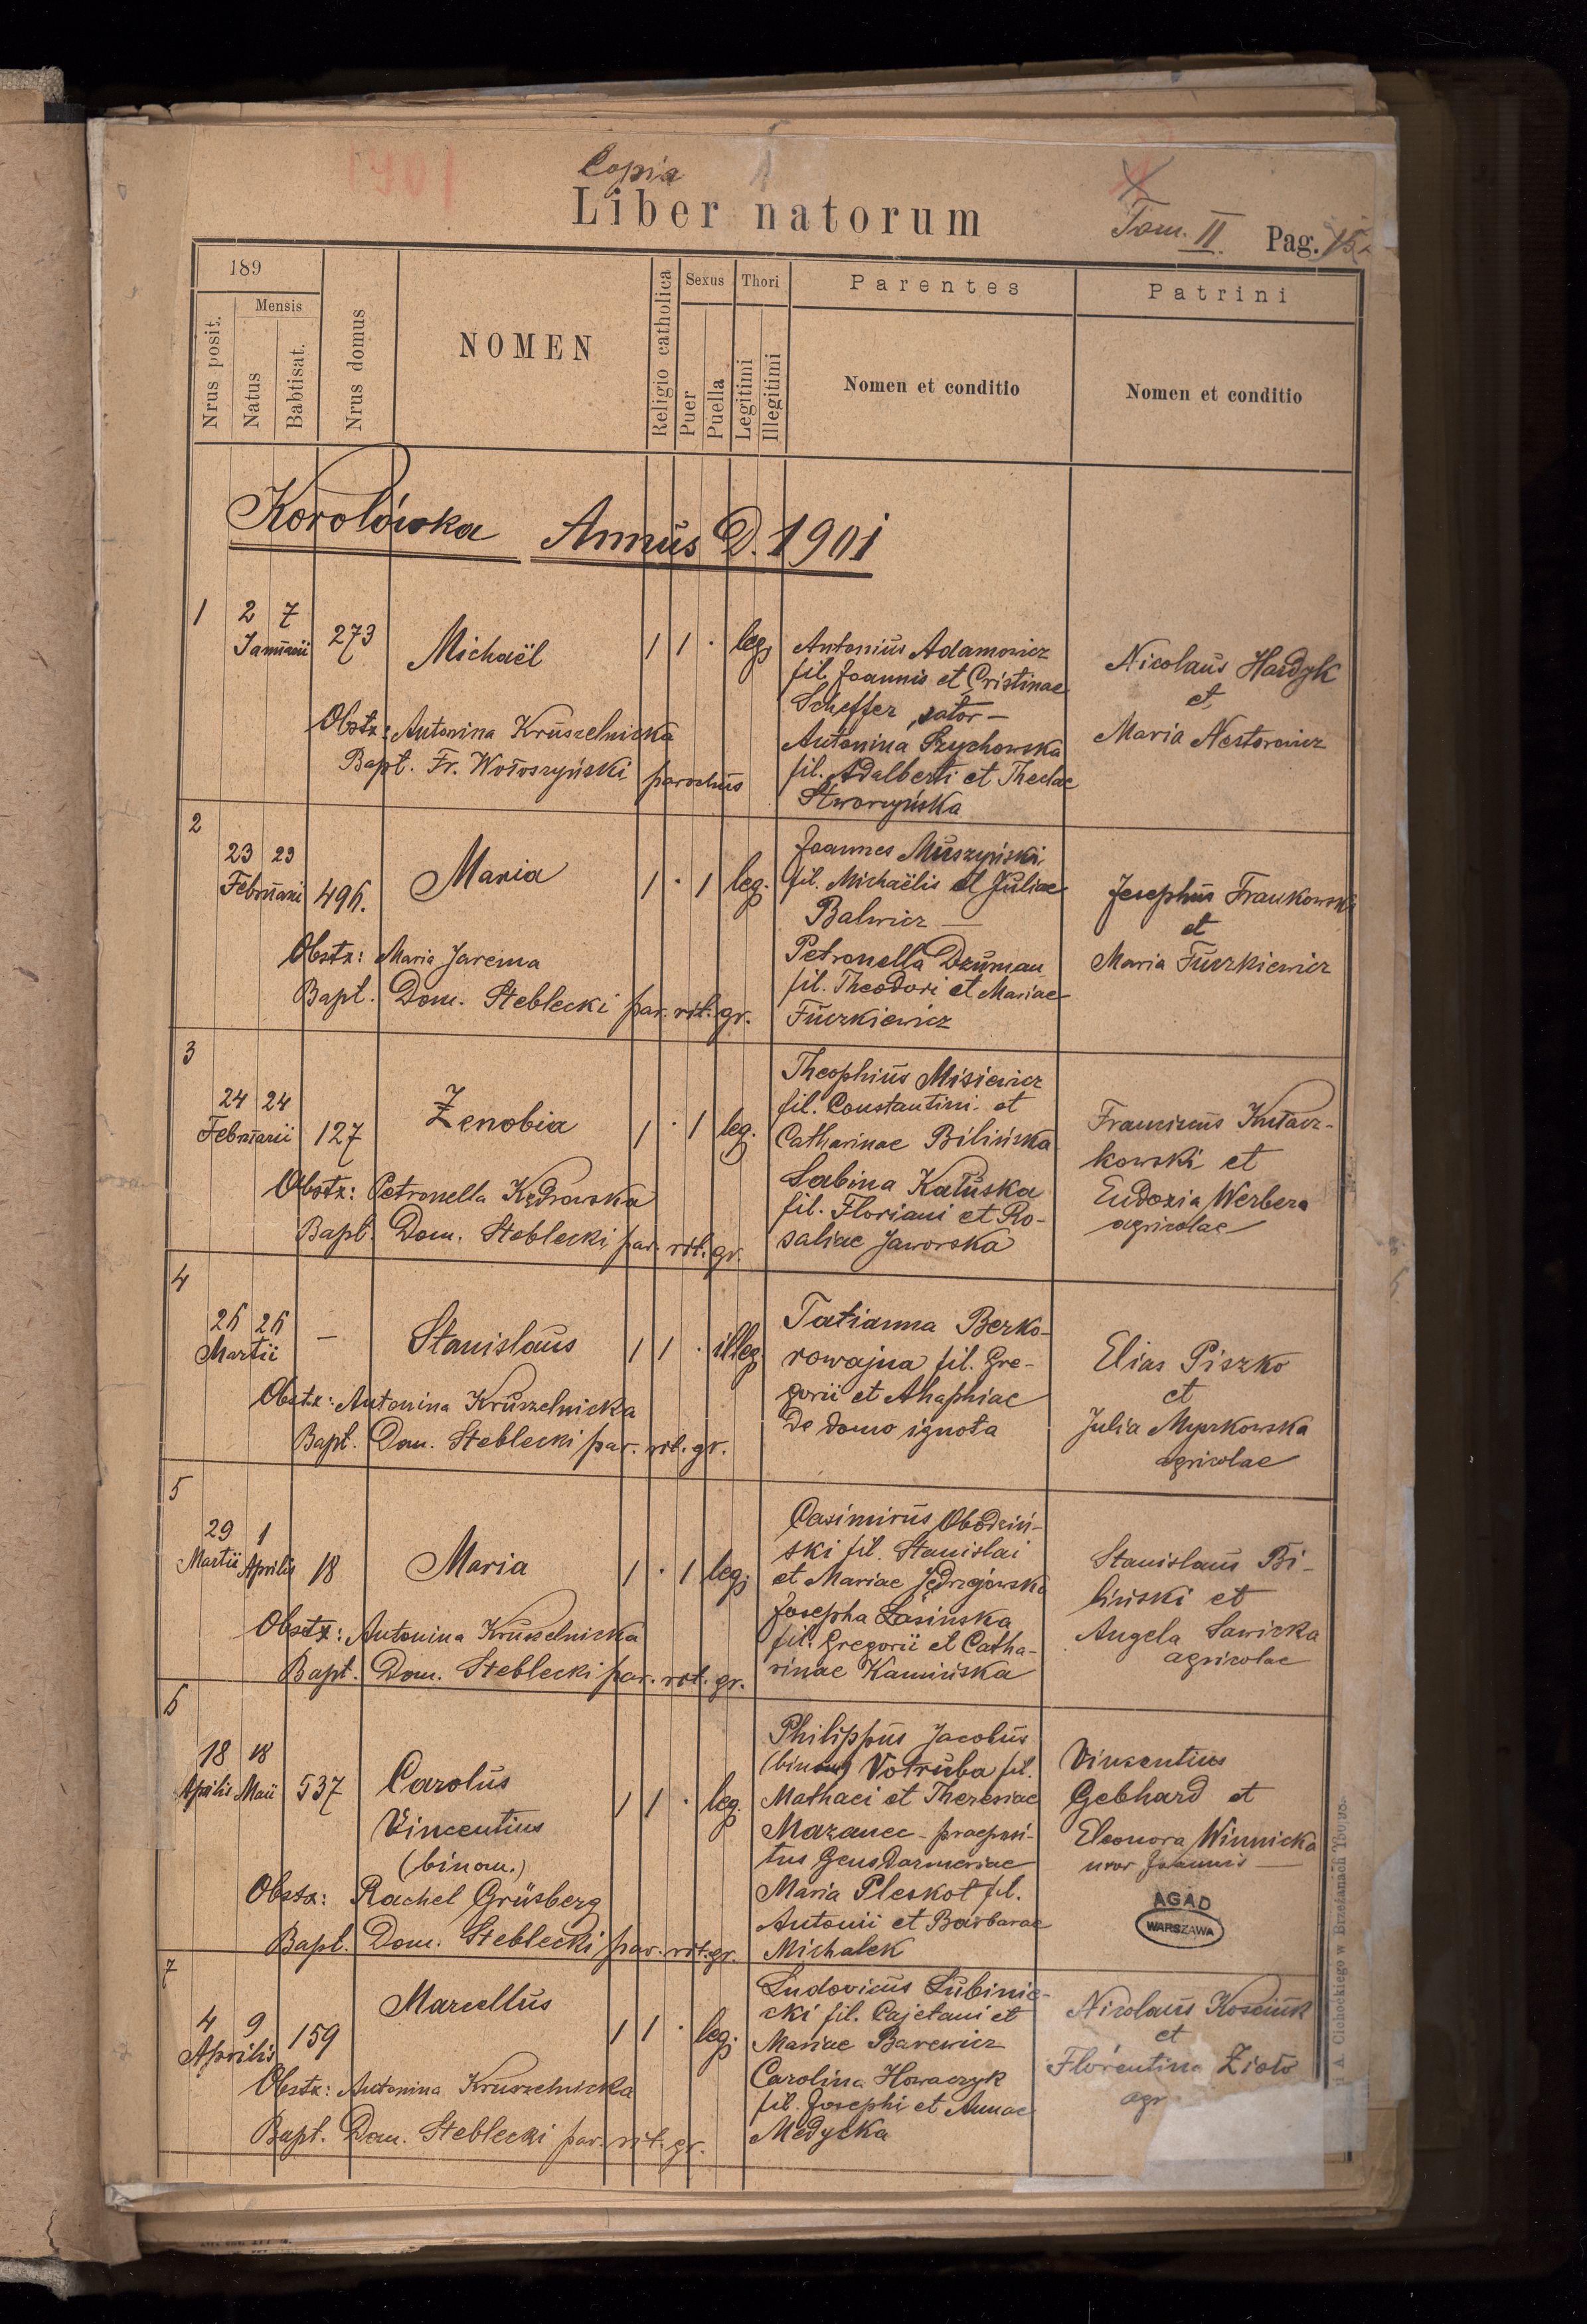 Copia
Liber natorum
Tom. II. Pag. 15
189
Nrus posit.
Mensis
Natus
Babtisat.
Nrus domus
NOMEN
Religio catholica
Sexus
Puer
Puella
Thori
Legitimi
Illegitimi
Parentes
Nomen et conditio
Patrini
Nomen et conditio
Korolówka Annus D. 1901
1
2 7
Januarii
273
Michaël
1 1 · leg.
Antonius Adamowicz
fil. Joannis et Cristinae
Scheffer, sator –
Antonina Szychowska
fil. Adalberti et Theclae
Stworzyńska
Nicolaus Hardyk
et
Maria Nestorowicz
Obstx: Antonina Kruszelnicka
Bapt. Fr. Wołoszyński parochus
2
23 23
Februarii
496.
Maria
1 · 1 leg.
Joannes Muszyński
fil. Michaëlis et Juliae
Balwicz –
Petronella Dzuman
fil. Theodori et Mariae
Fuczkiewicz
Josephus Frankowski
et
Maria Fuczkiewicz
Obstx: Maria Jarema
Bapt. Dom. Steblecki par. rit. gr.
3
24 24
Februarii
127
Zenobia
1 · 1 leg.
Theophius Misiewicz
fil. Constantini et
Catharinae Bilińska
Sabina Kałuska
fil. Floriani et Ro-
saliae Jaworska
Franciscus
kowski et
Eudoxia Werbera
agricolae
Obstx: Petronella Kędrowska
Bapt. Dom. Steblecki par. rit. gr.
4
26 26
Martii
–
Stanislaus
1 1 · illeg.
Tatianna Berko-
rowajna fil. Gre-
gorii et Ahaphiae
de domo ignota
Elias Piszko
et
Julia Myszkowska
agricolae
Obstx: Antonina Kruszelnicka
Bapt. Dom. Steblecki par. rit. gr.
5
29 1
Martii Aprilis
18
Maria
1 · 1 leg.
Casimirus Obodziń-
ski fil. Stanislai
et Mariae Jędrzejowska
Josepha Łasińska
fil. Gregorii et Catha-
rinae Kamińska
Stanislaus Bi-
liński et
Angela Sawicka
agricolae
Obstx: Antonina Kruszelnicka
Bapt. Dom. Steblecki par. rit. gr.
6
18 18
Aprilis Maii
537
Carolus
Vincentius
(binom.)
1 1 · leg.
Philippus Jacobus
(binom) Votruba fil.
Mathaei et Theresiae
Mazanec – praeposi-
tus Gensdarmeriae
Maria Pleskot fil.
Antonii et Barbarae
Michalek
Vinzentius
Gebhard et
Eleonora Winnicka
uxor Joannis –
Obstx: Rachel Grüsberg
Bapt. Dom. Steblecki par. rit. gr.
AGAD
WARSZAWA
7
4 9
Aprilis
159
Marcellus
1 1 · leg.
Ludovicus Lubinie-
cki fil. Cajetani et
Mariae Barewicz
Carolina Howaczyk
fil. Josephi et Annae
Medycka
Nicolaus Kosciuk
et
Florentina Zioło
agr
Obstx: Antonina Kruszelnicka
Bapt. Dom. Steblecki par. rit. gr.
A. Cichockiego w Brzeżanach